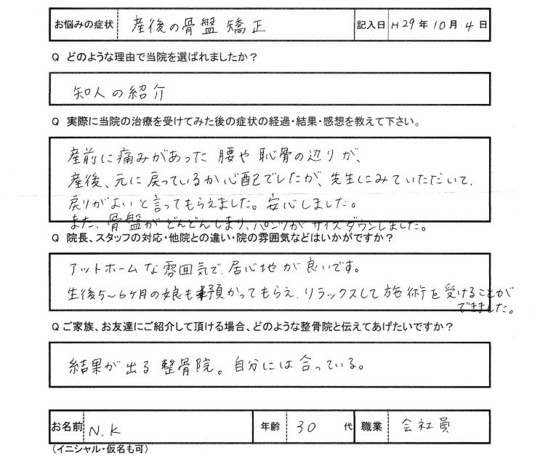 お悩みの症状 産後の骨盤矯正 記入日 H29年10月4日
Q どのような理由で当院を選ばれましたか？
知人の紹介
Q 実際に当院の治療を受けてみた後の症状の経過・結果・感想を教えて下さい。
産前に痛みがあった 腰や恥骨の辺りが、
産後、元に戻っているか心配でしたが、先生にみていただいて、
戻りがよいと言ってもらえました。安心しました。
また、骨盤がどんどんしまり、パンツがサイズダウンしました。
Q 院長、スタッフの対応・他院との違い・院の雰囲気などはいかがですか？
アットホームな雰囲気で、居心地が良いです。
生後5〜6ヶ月の娘も預かってもらえ、リラックスして施術を受けることが
できました。
Q ご家族、お友達にご紹介して頂ける場合、どのような整骨院と伝えてあげたいですか？
結果が出る整骨院。自分には合っている。
お名前 N.K 年齢 30代 職業 会社員
（イニシャル・仮名も可）